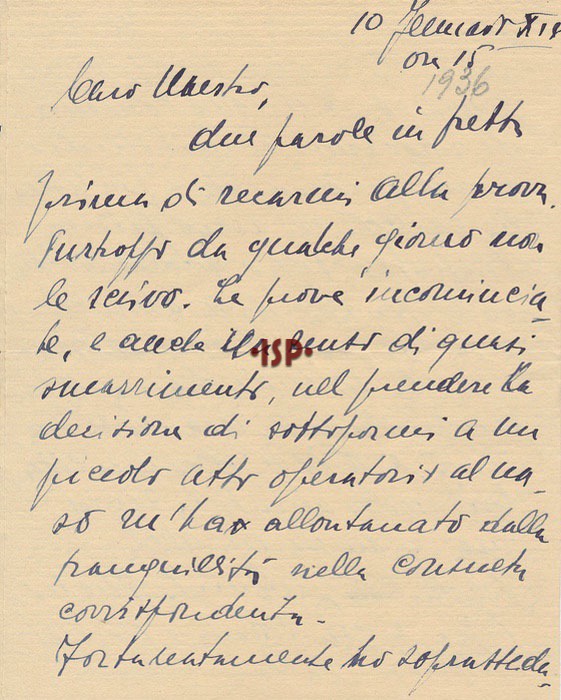 10 Gennaio XIV
ore 15
1936
Caro Maestro,
due parole in fretta
prima di recarmi alla prova.
Purtroppo da qualche giorno non
le scrivo. Le prove incomincia-
te, e anche il senso di quasi
·1SP·
smarrimento, nel prendere la
decisione di sottopormi a un
piccolo atto operatorio al na-
so m'ha allontanato dalla
tranquillità nella consueta
corrispondenza.
Fortunatamente ho soprattedu-